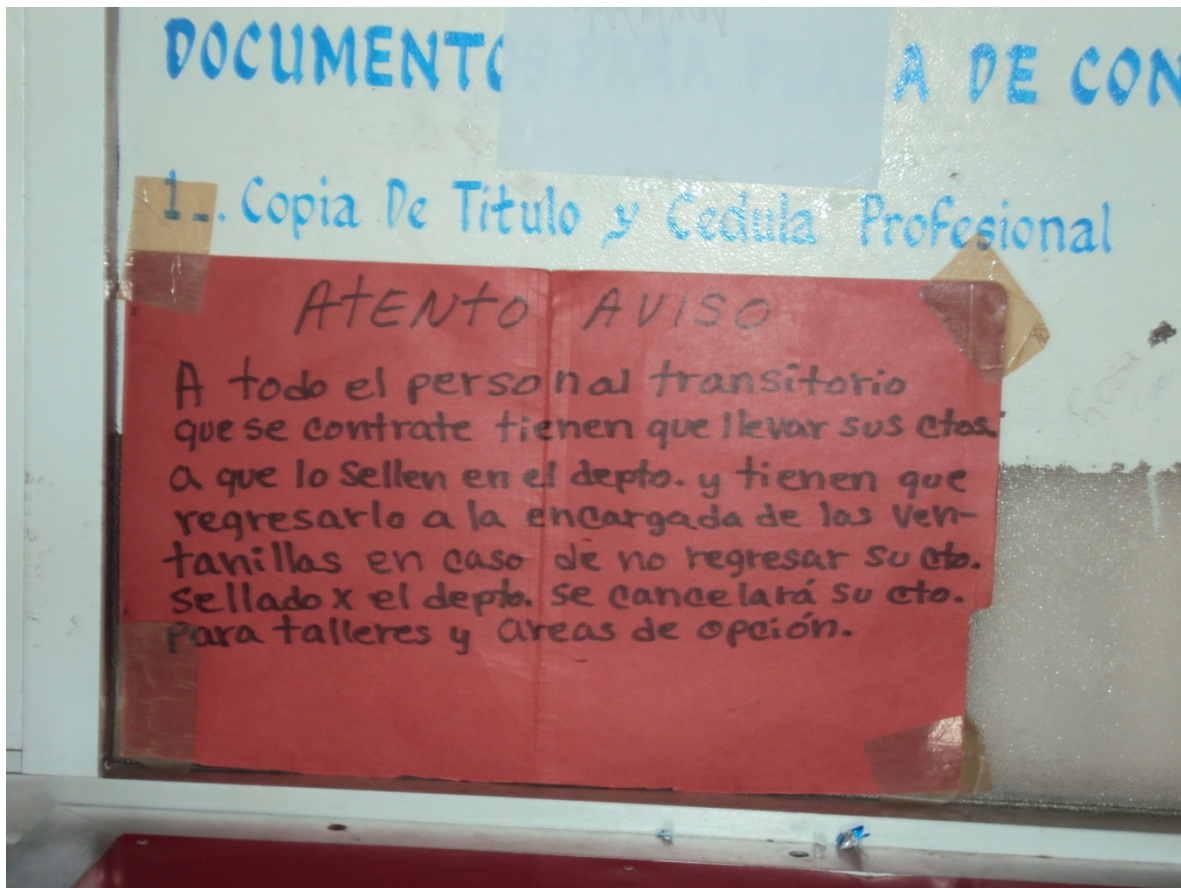 DOCUMENTO PARA PLAZA DE CON
1_. Copia De Titulo y Cedula Profesional
AtENtO AVISO
A todo el personal transitorio
que se contrate tienen que llevar sus ctos.
a que lo sellen en el depto. y tienen que
regresarlo a la encargada de las ven-
tanillas en caso de no regresar su cto.
sellado x el depto. se cancelará su cto.
para talleres y areas de opción.